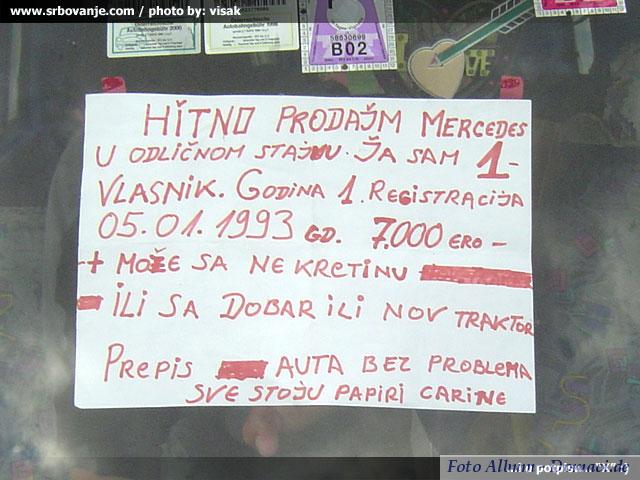 www.srbovanje.com / photo by: visak
Österreichische
Autobahngebühr 2000
Österreichische
Autobahngebühr 1998
58630698
B02
HITNO PRODAJM MERCEDES
U ODLIČNOM STAJNU. JA SAM 1-
VLASNIK. GODINA 1. REGISTRACIJA
05.01.1993 GD. 7.000 ERO-
+ MOŽE SA NEKRETINU
- ILI SA DOBAR ILI NOV TRAKTOR
PREPIS AUTA BEZ PROBLEMA
SVE STOJU PAPIRI CARINE
Foto Album - Domaci.de